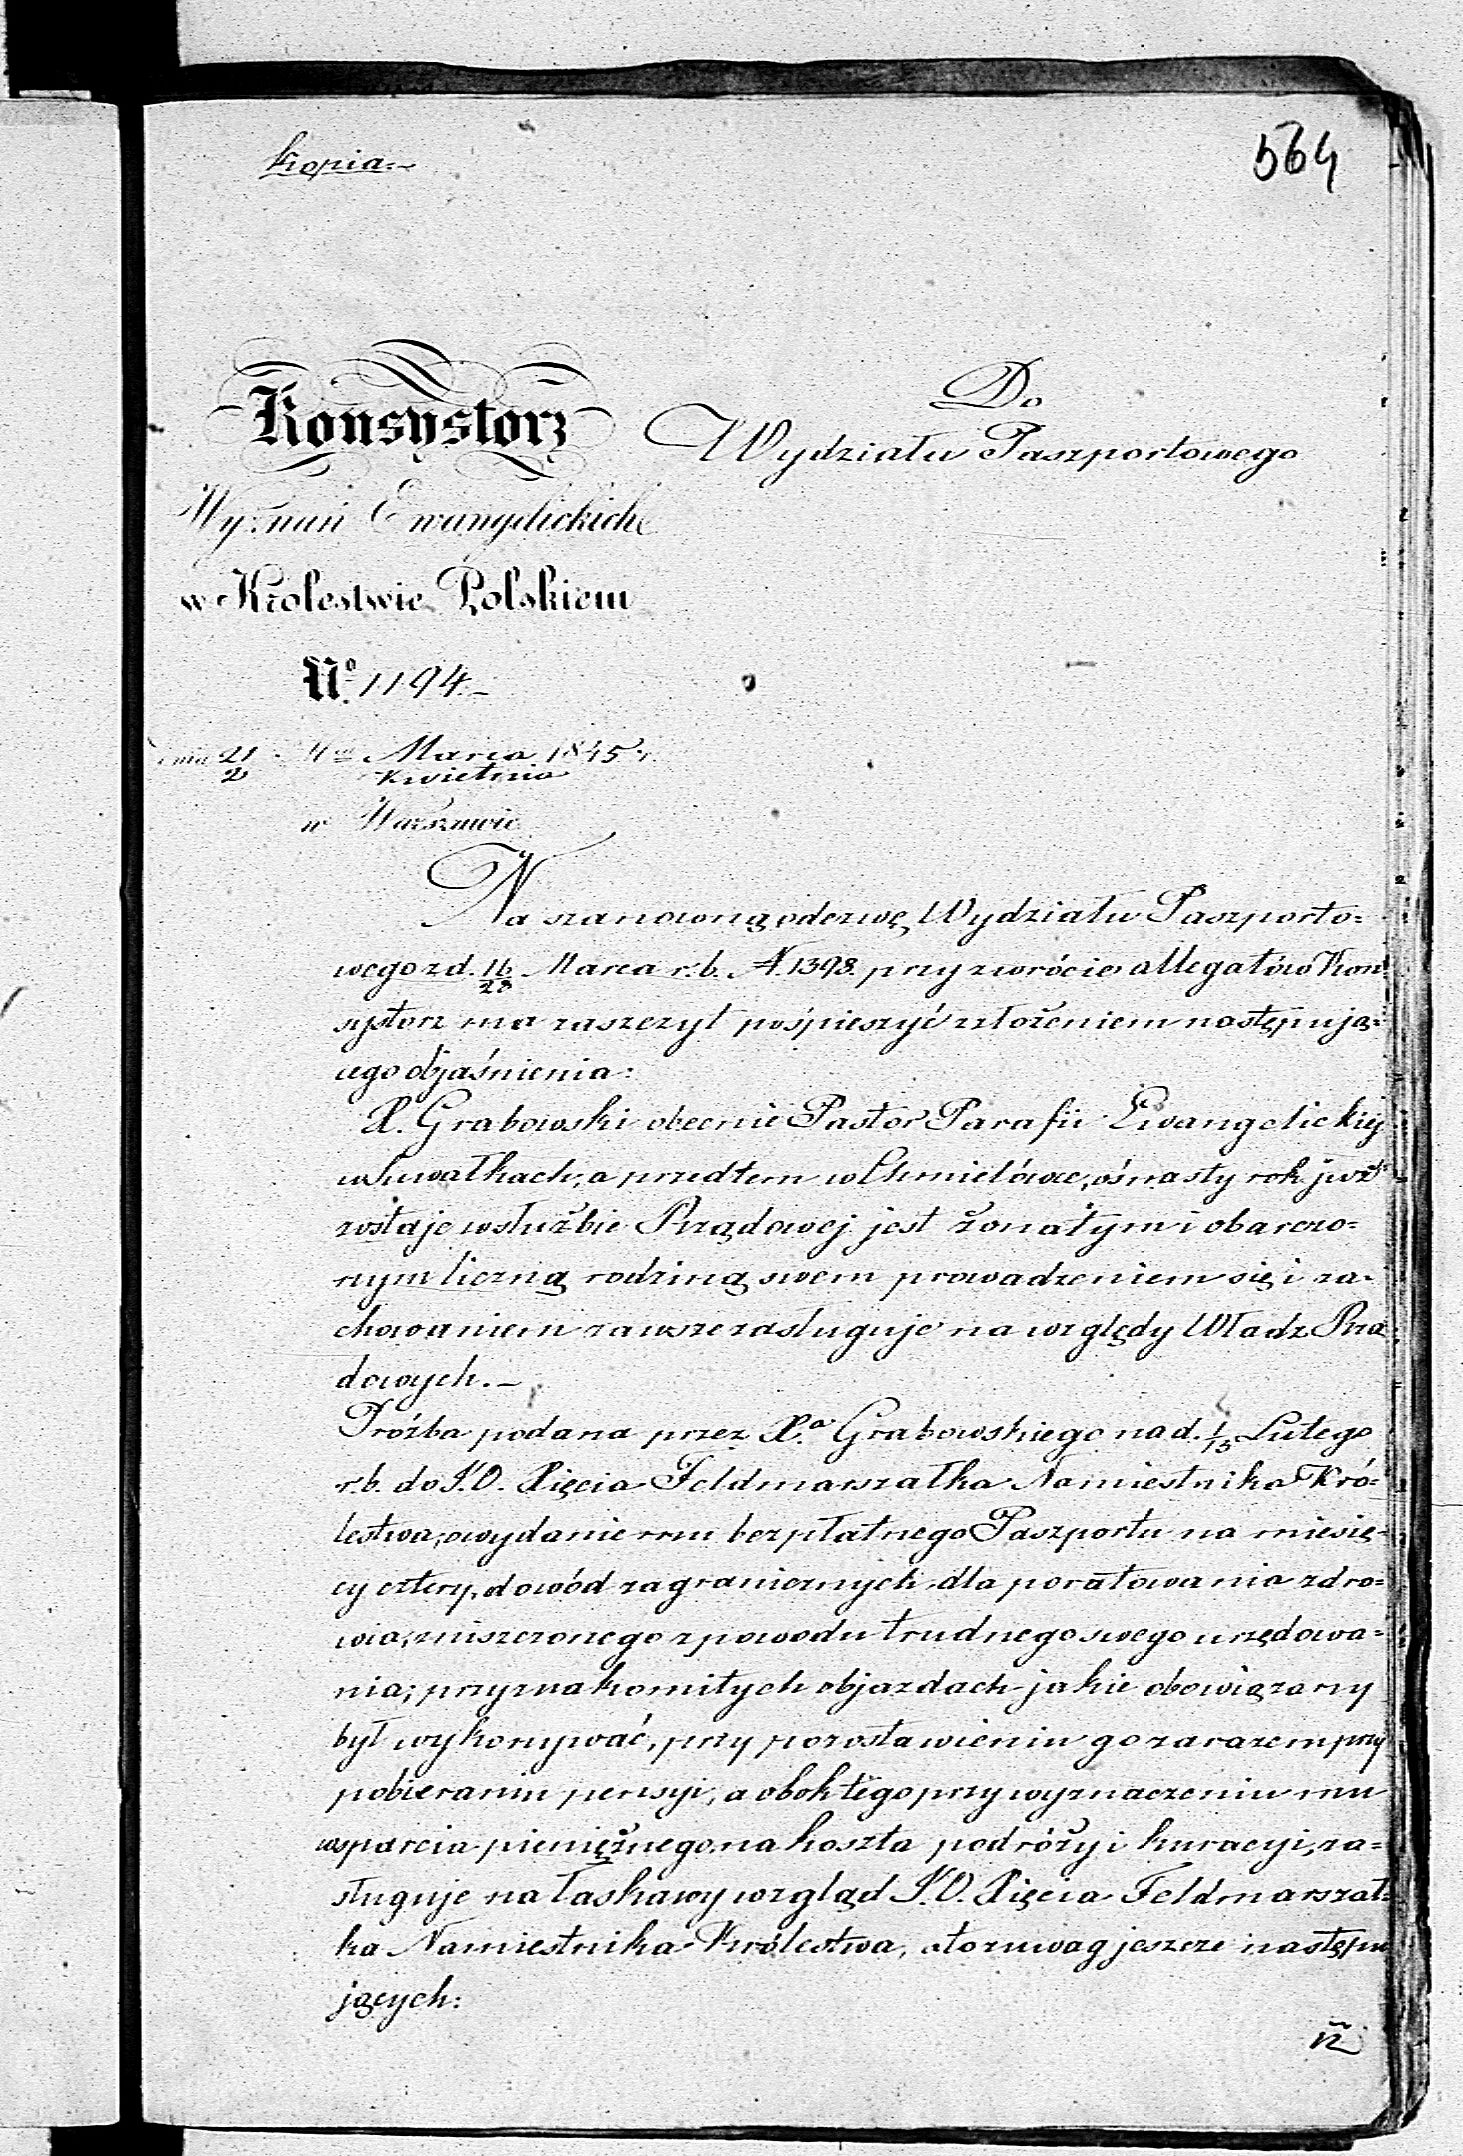 Kopia.-
564
Konsystorz
Wyznań Ewangelickich
w Krolestwie Polskiem
Nº. 1194.-
dnia 21/2 Marca/Kwietnia 1845 r.
w Warszawie
Do
Wydziału Paszportowego
Na szanowną odezwę Wydziału Paszporto=
wego z d. 16/28 Marca r. b. N. 1393. przy zwrócie allegatów Kon=
systorz ma zaszczyt pośpieszyć złożeniem następują=
cego objaśnienia:
X. Grabowski obecnie Pastor Parafii Ewangelickiej
w Suwałkach, a przedtem w Chmielówce, ósnasty rok już
zostaje w służbie Rządowej jest żonatym i obarczo=
nym liczną rodziną swem prowadzeniem się i za=
chowaniem zawsze zasługuje na względy Władz Rzą=
dowych.-
Prózba podana przez X.ª Grabowskiego na d. 1/13 Lutego
r. b. do J. O. Xięcia Feldmarszałka Namiestnika Kró=
lestwa, o wydanie mu bezpłatnego Paszportu na miesię=
cy cztery, do wód zagranicznych dla poratowania zdro=
wia, zniszczonego z powodu trudnego swego urzędowa=
nia; przy znakomitych objazdach jakie obowiązany
był wykonywać, przy pozostawieniu go zarazem przy
pobieraniu pensyi, a obok tego przy wyznaczeniu mu
wsparcia pieniężnego na koszta podróży i kuracyi, za=
sługuje na łaskawy wzgląd J. O. Xięcia Feldmarszał=
ka Namiestnika Królestwa, a to z uwag jeszcze następu
jących: